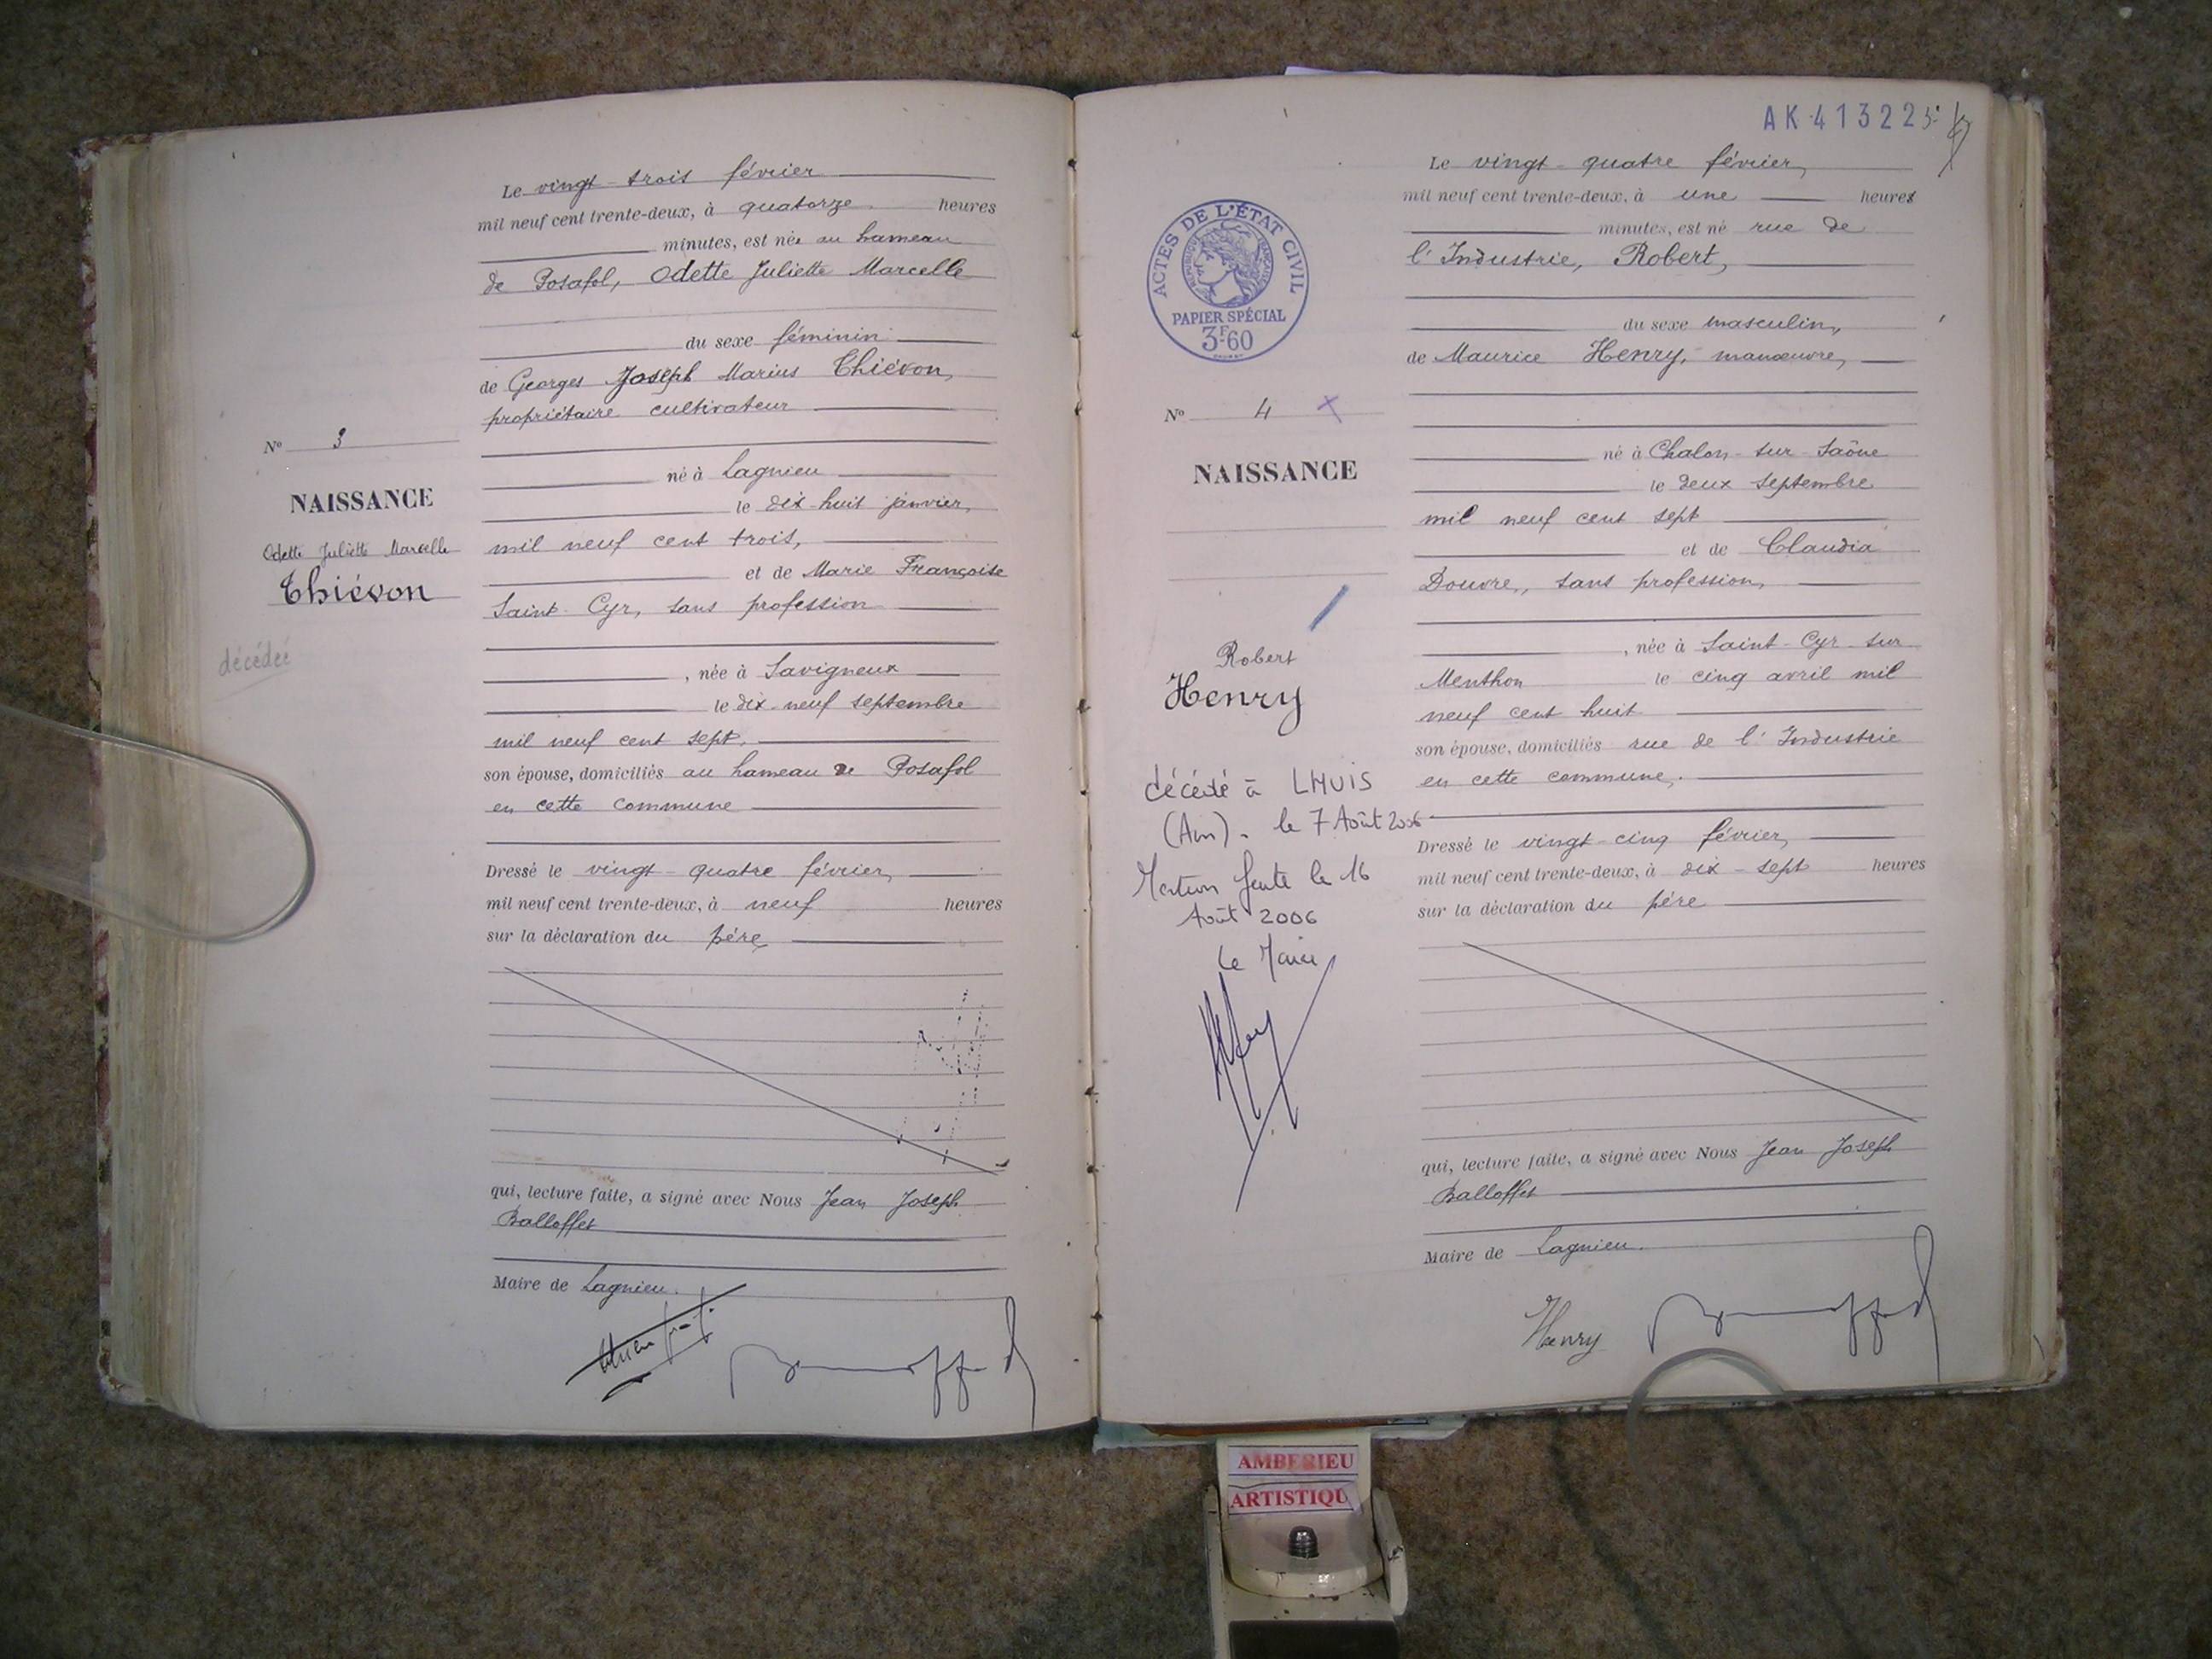 Le vingt-trois février
mil neuf cent trente-deux, à quatorze heures
minutes, est née au hameau
de Posafol, Odette Juliette Marcelle
du sexe féminin
de Georges Joseph Marius Thiévon,
propriétaire cultivateur
né à Lagnieu
le dix-huit janvier
mil neuf cent trois,
et de Marie Françoise
Saint-Cyr, sans profession
, née à Savigneux
le dix-neuf septembre
mil neuf cent sept,
son épouse, domiciliés au hameau de Posafol
en cette commune
Dressé le vingt-quatre février,
mil neuf cent trente-deux, à neuf heures
sur la déclaration du père
qui, lecture faite, a signé avec Nous Jean Joseph
Balloffet
Maire de Lagnieu.
No 3
NAISSANCE
Odette Juliette Marcelle
Thiévon
décédée
AK 413225
Le vingt-quatre février,
mil neuf cent trente-deux, à une heures
minutes, est né rue de
l'Industrie, Robert,
du sexe masculin,
de Maurice Henry, manœuvre,
né à Chalon-sur-Saône
le deux septembre
mil neuf cent sept
et de Claudia
Douvre, sans profession,
, née à Saint-Cyr-sur
Menthon le cinq avril mil
neuf cent huit
son épouse, domiciliés rue de l'Industrie
en cette commune,
Dressé le vingt-cinq février,
mil neuf cent trente-deux, à dix-sept heures
sur la déclaration du père
qui, lecture faite, a signé avec Nous Jean Joseph
Balloffet
Maire de Lagnieu.
Henry
ACTES DE L'ÉTAT CIVIL
RÉPUBLIQUE FRANÇAISE
PAPIER SPÉCIAL
3F60
No 4
NAISSANCE
Robert
Henry
décédé à LHUIS
(Ain). le 7 Août 2006
Mention faite le 16
Août 2006
Le Maire
AMBERIEU
ARTISTIQU